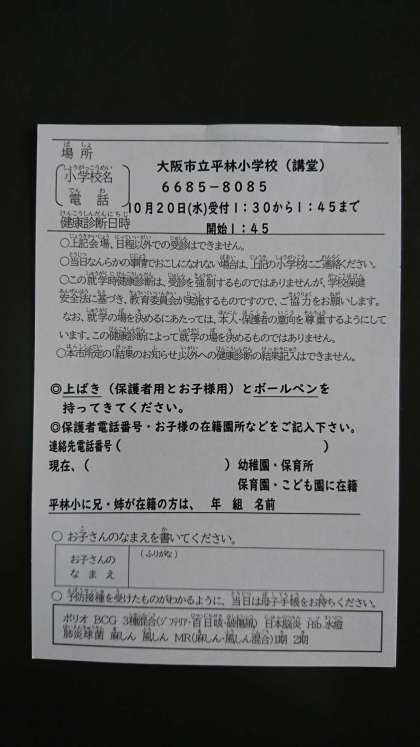 場所
大阪市立平林小学校（講堂）
小学校名
電話
6685-8085
10月20日(水)受付1:30から1:45まで
健康診断日時
開始1:45
○上記会場、日程以外での受診はできません。
○当日なんらかの事情でおこしになれない場合は、上記の小学校にご連絡ください。
○この就学時健康診断は、受診を強制するものではありませんが、学校保健
安全法に基づき、教育委員会が実施するものですので、ご協力をお願いします。
なお、就学の場を決めるにあたっては、本人・保護者の意向を尊重するようにして
います。この健康診断によって就学の場を決めるものではありません。
○本市所定の「結果のお知らせ」以外への健康診断の結果記入はできません。
◎上ばき（保護者用とお子様用）とボールペンを
持ってきてください。
◎保護者電話番号・お子様の在籍園所などをご記入下さい。
連絡先電話番号（ ）
現在、（ ）幼稚園・保育所
保育園・こども園に在籍
平林小に兄・姉が在籍の方は、 年 組 名前
○ お子さんのなまえを書いてください。
お子さんの
なまえ
（ふりがな）
○ 予防接種を受けたものがわかるように、当日は母子手帳をお持ちください。
ポリオ BCG 3種混合(ジフテリア・百日咳・破傷風) 日本脳炎 Hib 水痘
肺炎球菌 麻しん 風しん MR(麻しん・風しん混合)1期 2期